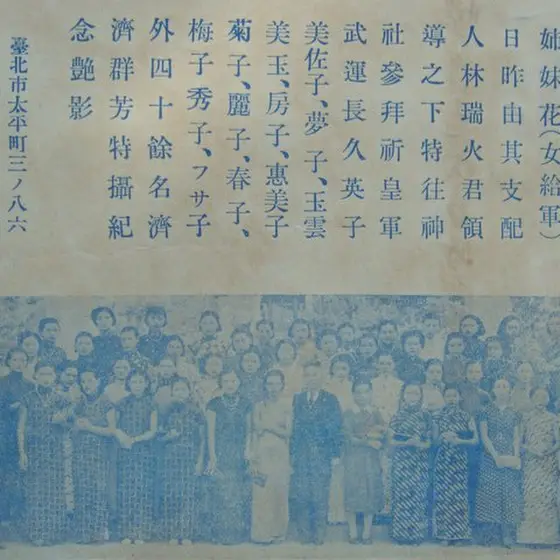 姉妹花(女給軍)
日昨由其支配
人林瑞火君領
導之下特往神
社參拜祈皇軍
武運長久英子
美佐子、夢子、玉雲
美玉、房子、惠美子
菊子、麗子、春子、
梅子秀子、フサ子
外四十餘名濟
濟群芳特攝紀
念艷影
臺北市太平町三ノ八六